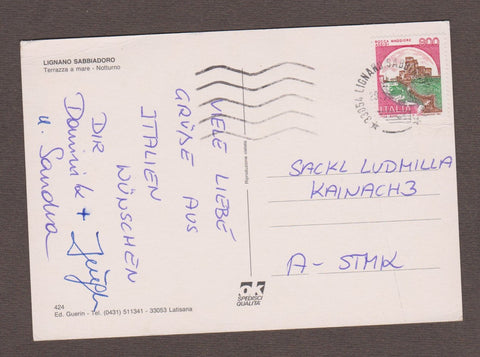 LIGNANO SABBIADORO
Terrazza a mare - Notturno
VIELE LIEBE
GRÜßE AUS
ITALIEN
WÜNSCHEN
DIR
Dominik +
u. Sandra
Riproduzione vietata
800
ROCCA MAGGIORE
ITALIA
33054 LIGNANO SABB
SACKL LUDMILLA
KAINACH 3
A - STMK
OK
SPEDISCI
QUALITÀ
424
Ed. Guerin - Tel. (0431) 511341 - 33053 Latisana